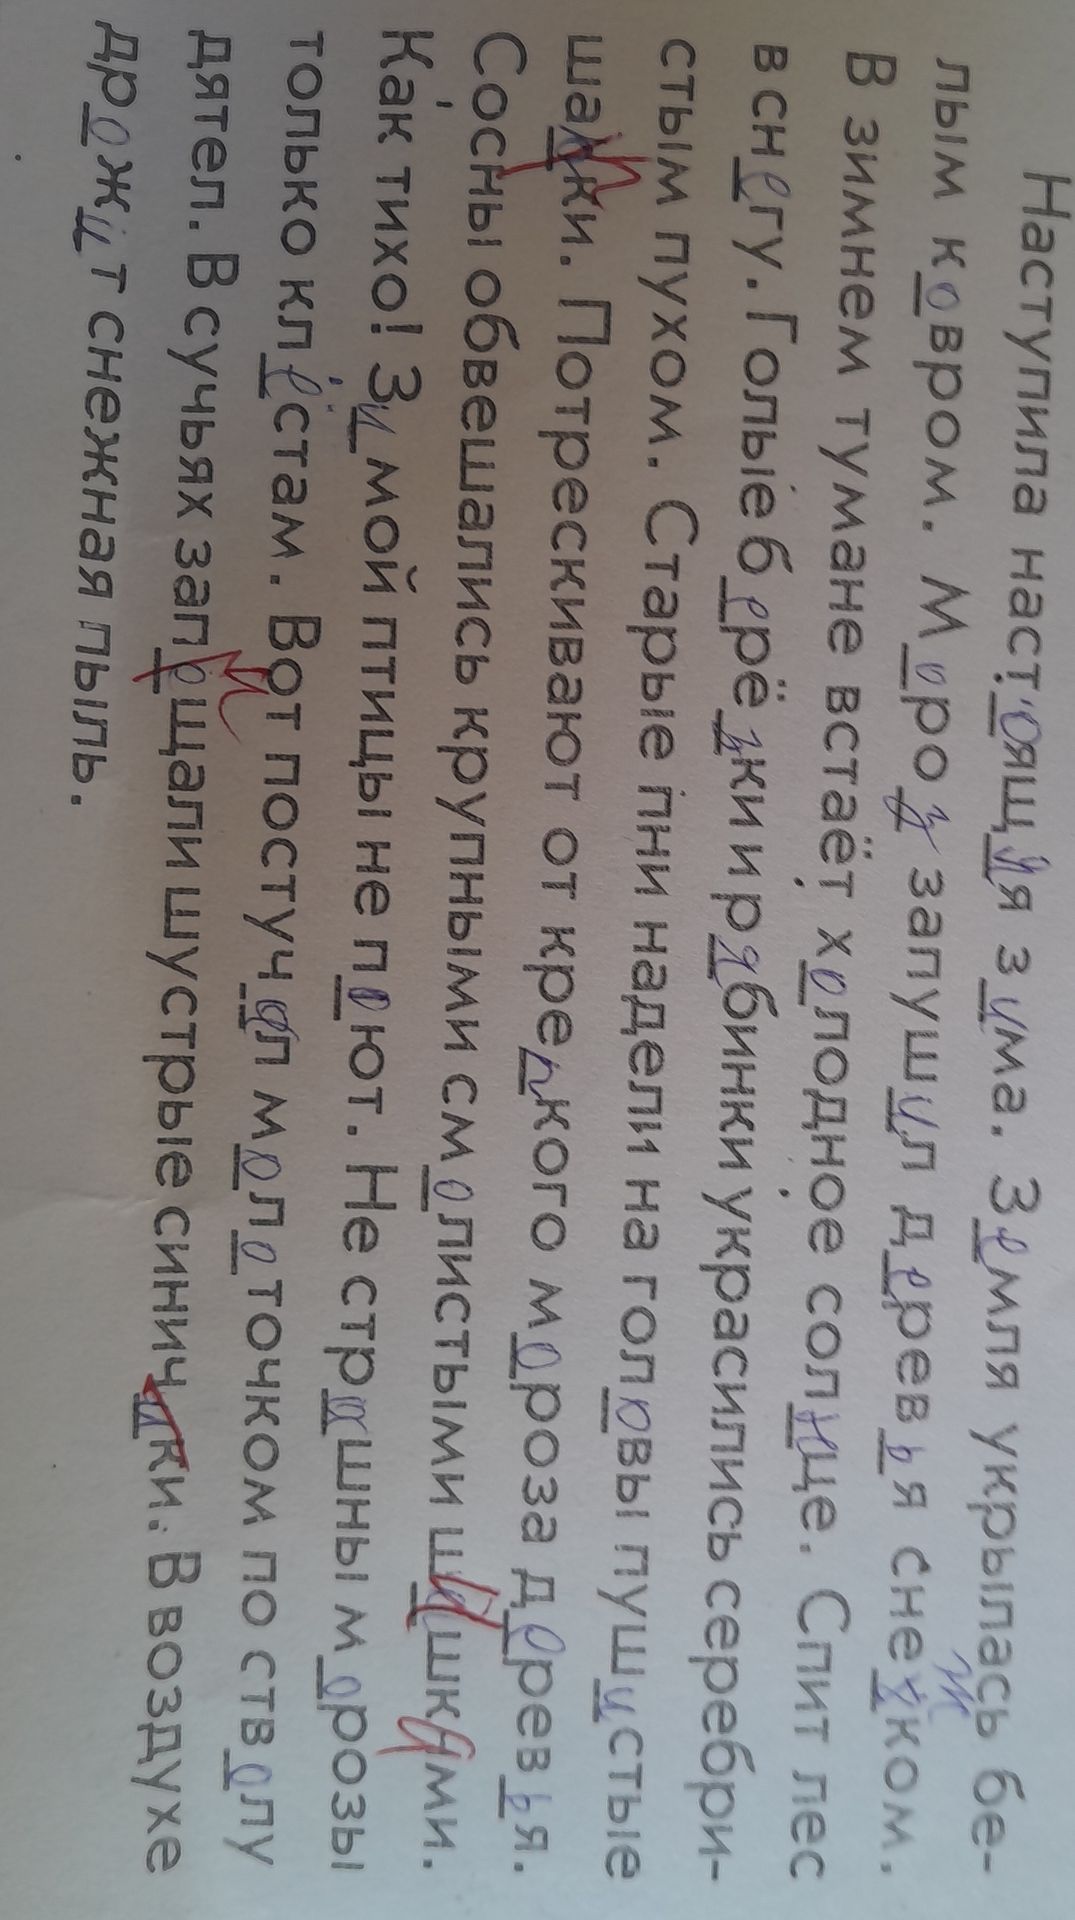 Наступила настоящая зима. Земля укрылась бе-
лым ковром. Мороз запушил деревья снежком.
В зимнем тумане встаёт холодное солнце. Спит лес
в снегу. Голые берёзки и рябинки украсились серебри-
стым пухом. Старые пни надели на головы пушистые
шапки. Потрескивают от крепкого мороза деревья.
Сосны обвешались крупными смолистыми шишками.
Как тихо! Зимой птицы не поют. Не страшны морозы
только клёстам. Вот постучал молоточком по стволу
дятел. В сучьях запищали шустрые синички. В воздухе
дрожит снежная пыль.